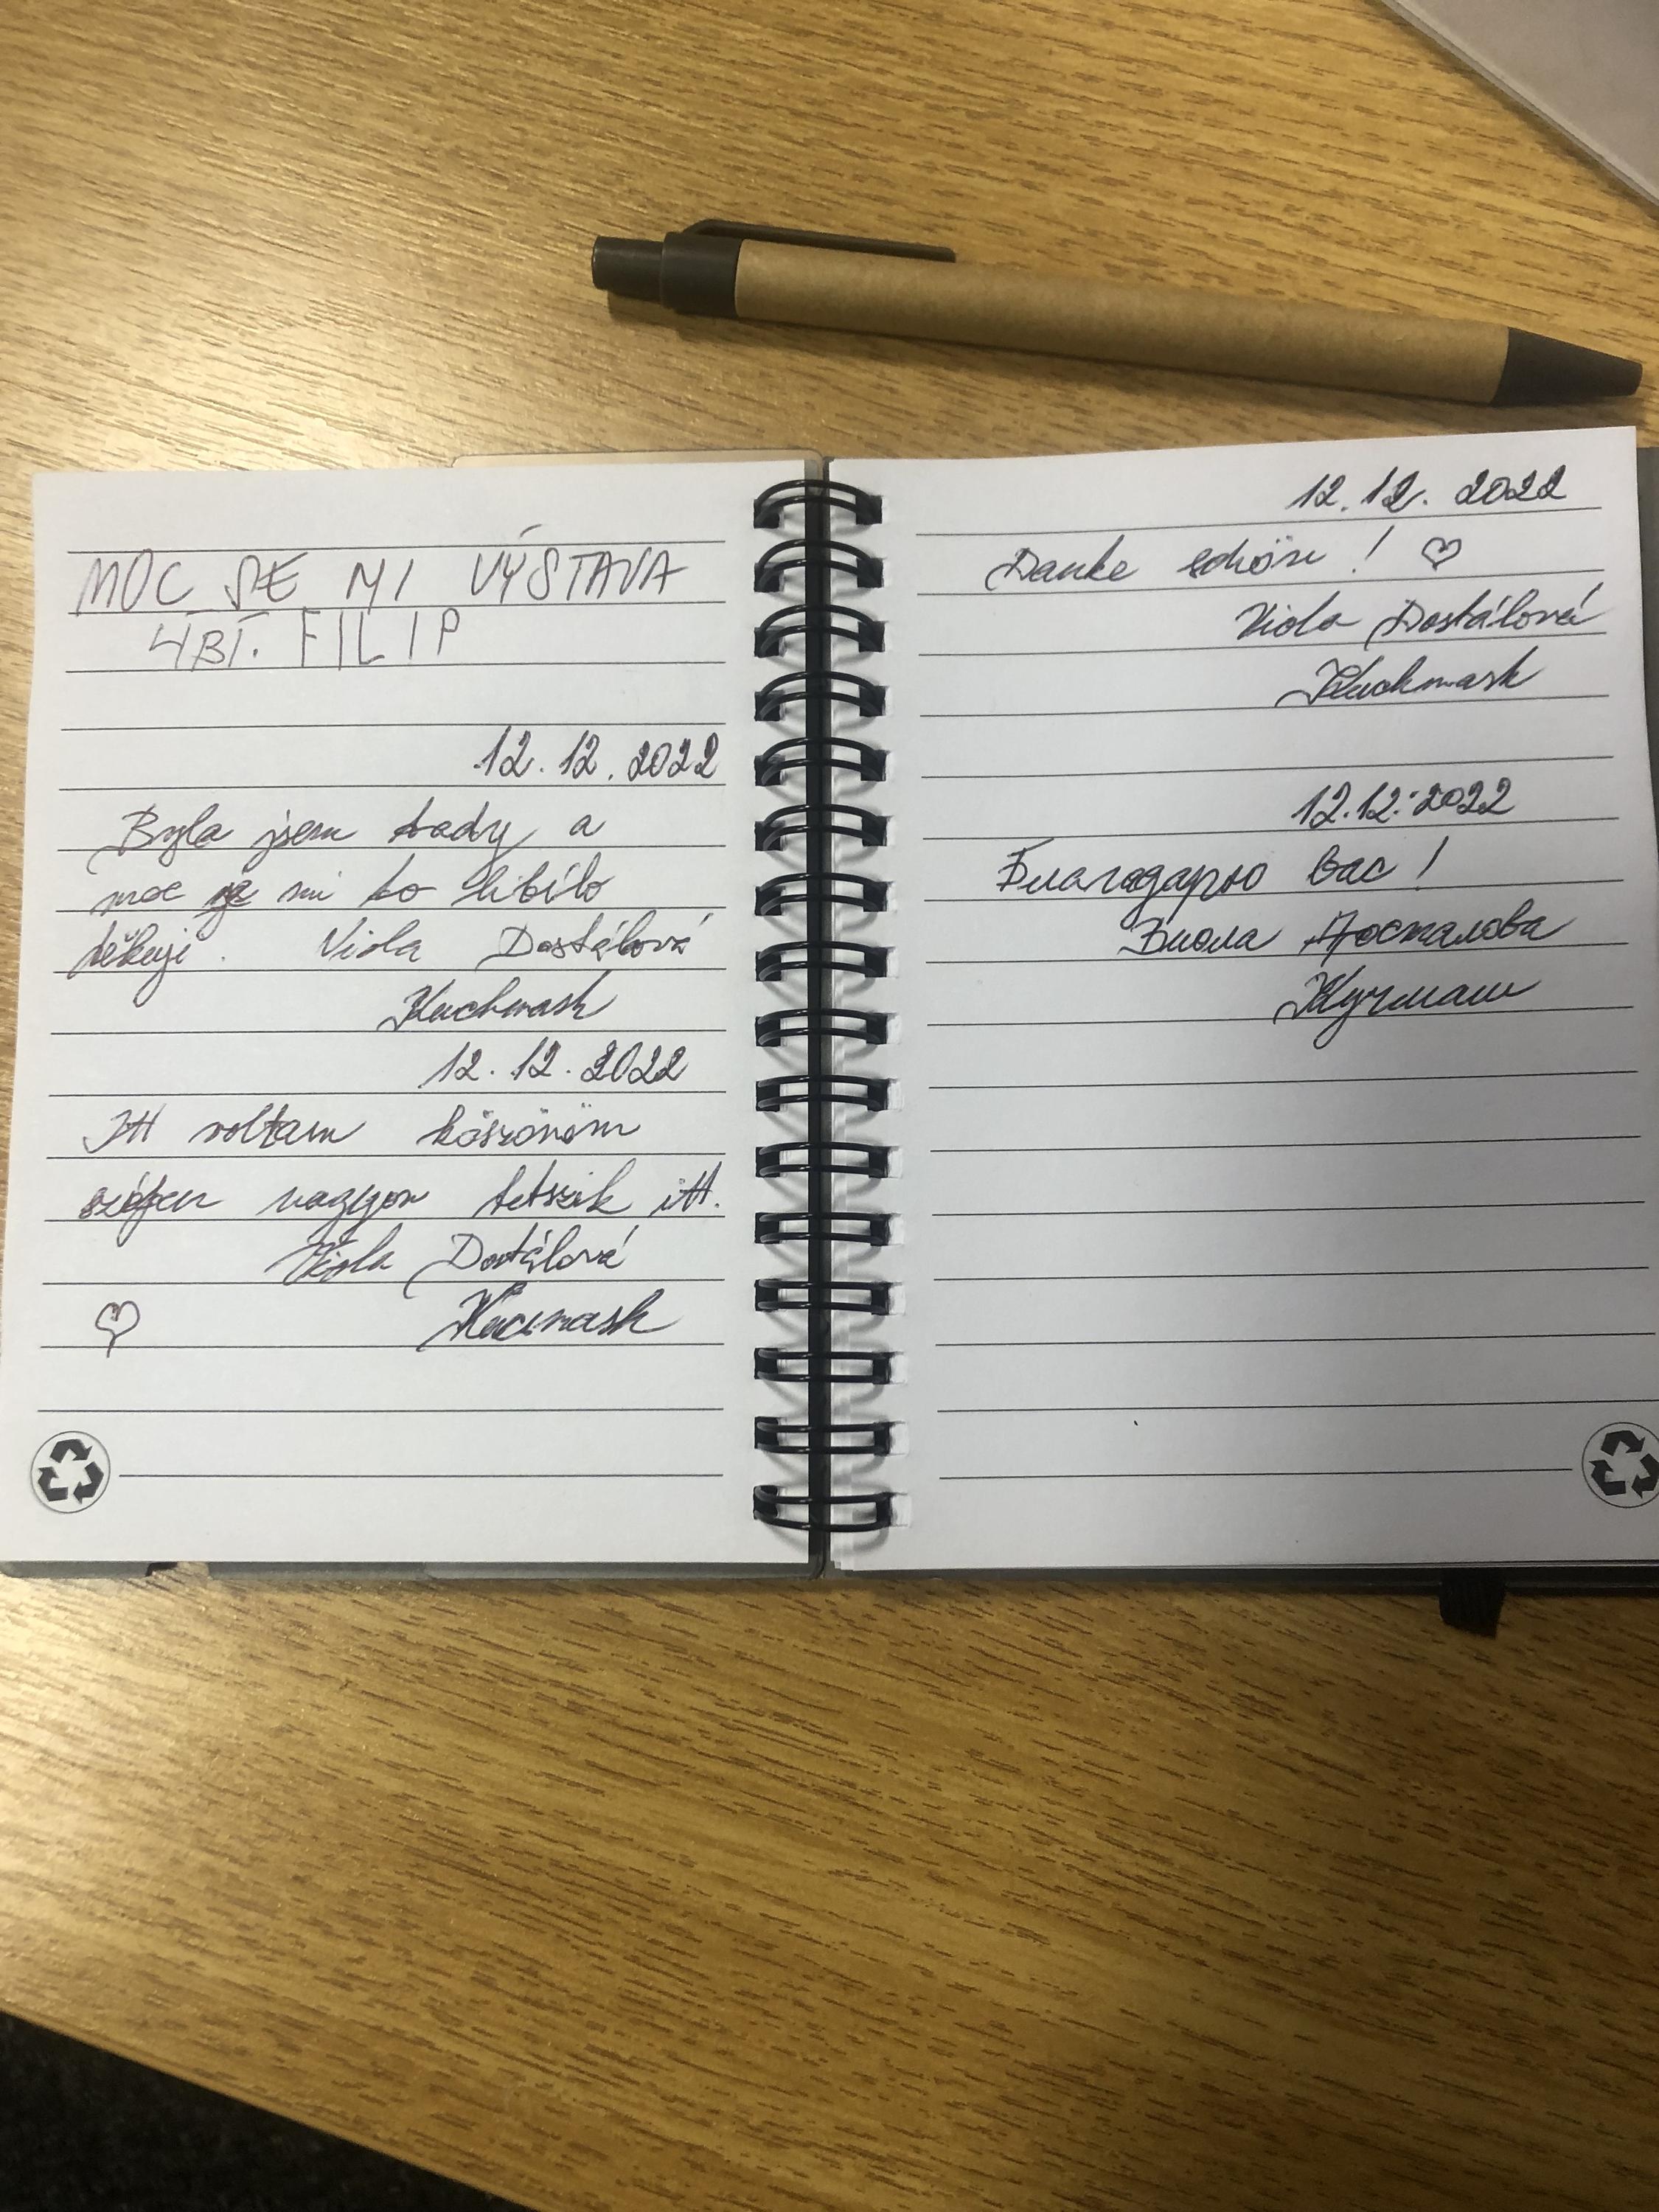 MOC SE MI VÝSTAVA
LÍBÍ. FILIP
12.12.2022
Byla jsem tady a
moc se mi to líbilo
děkuji. Viola Dostálová
Kuchmash
12.12.2022
Itt voltam köszönöm
szépen nagyon tetszik itt.
Viola Dostálová
Kucsmash
12.12.2022
Danke schön! ♡
Viola Dostálová
Kuchmash
12.12.2022
Благодарю Вас!
Виола Досталова
Кучмаш